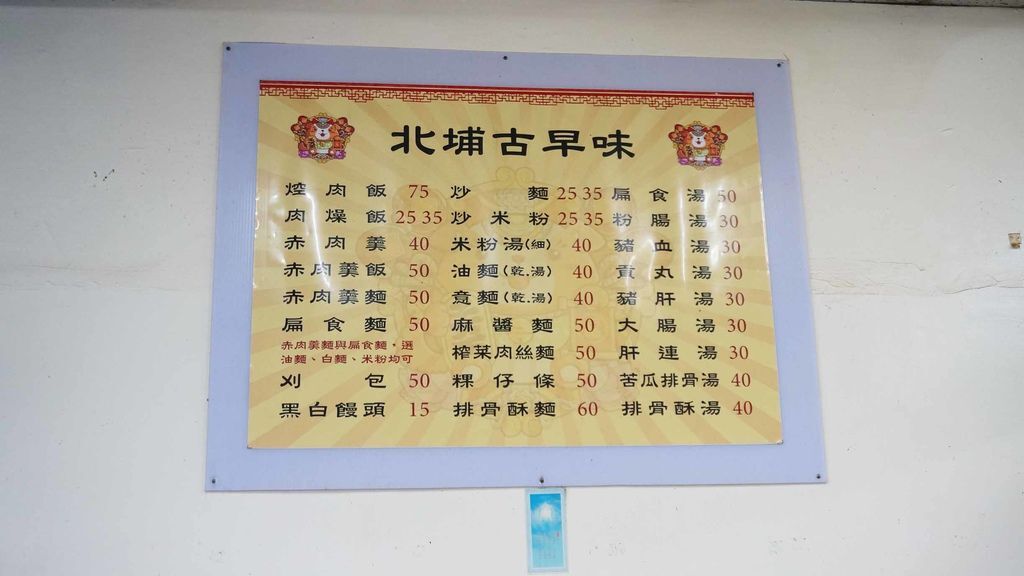 北埔古早味
焢肉飯 75
肉燥飯 25 35
赤肉羹 40
赤肉羹飯 50
赤肉羹麵 50
扁食麵 50
赤肉羹麵與扁食麵，選
油麵、白麵、米粉均可
刈包 50
黑白饅頭 15
炒麵 25 35
炒米粉 25 35
米粉湯(細) 40
油麵(乾.湯) 40
意麵(乾.湯) 40
麻醬麵 50
榨菜肉絲麵 50
粿仔條 50
排骨酥麵 60
扁食湯 50
粉腸湯 30
豬血湯 30
貢丸湯 30
豬肝湯 30
大腸湯 30
肝連湯 30
苦瓜排骨湯 40
排骨酥湯 40